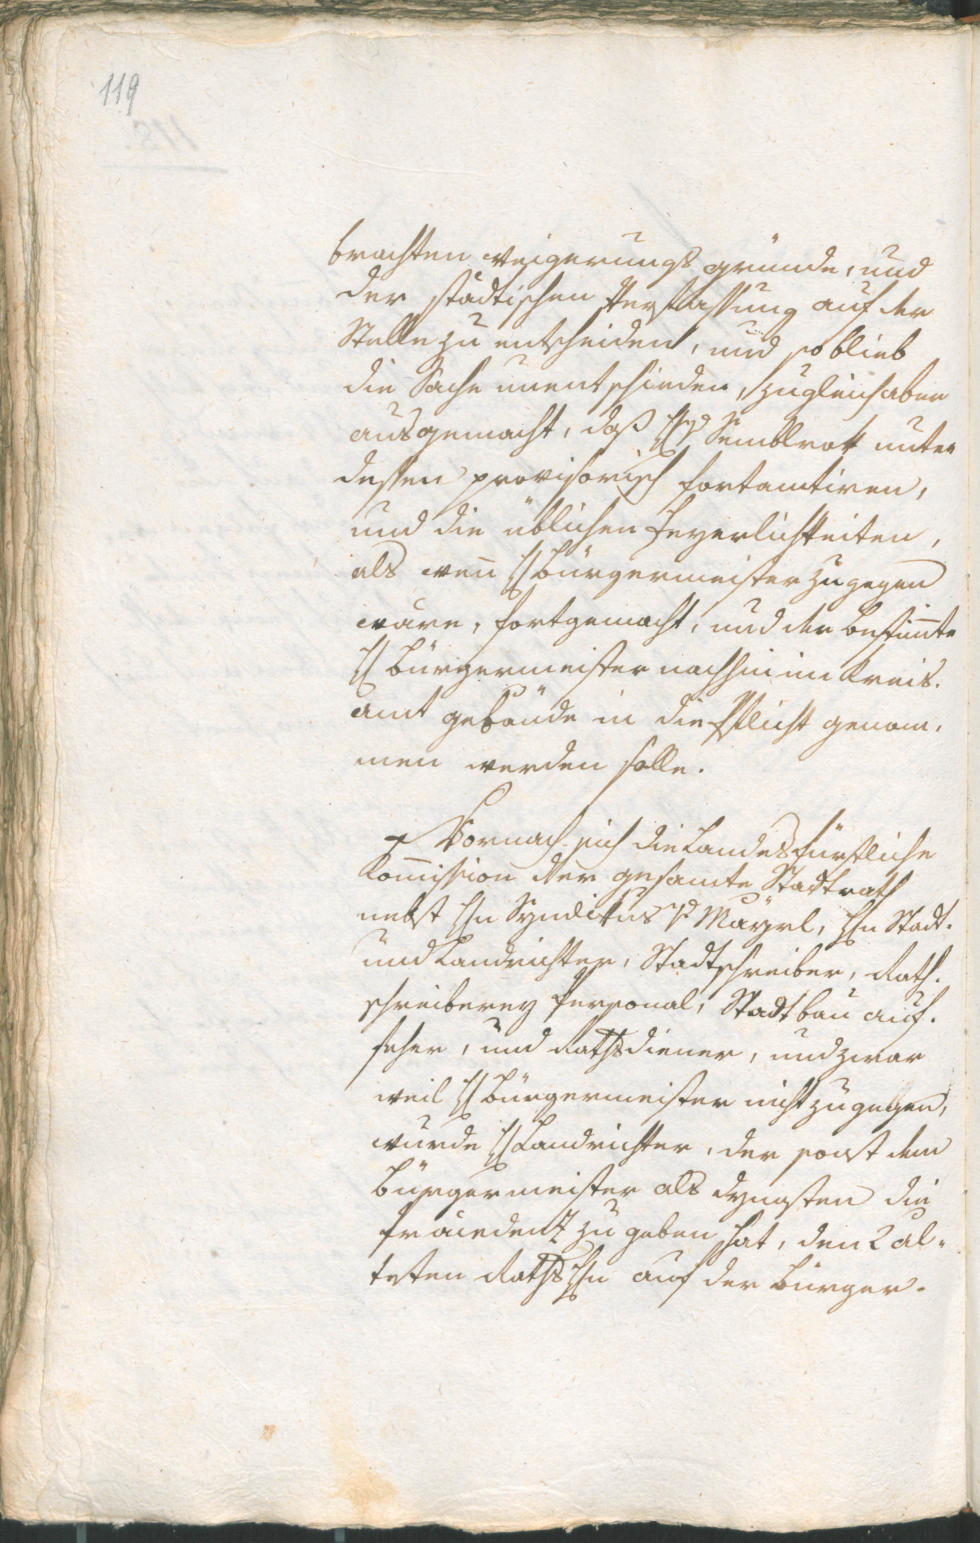 119
brachten Weigerungs gründe, und
der städtischen Verfassung auf der
Stelle zu entscheiden, und so blieb
die Sache unentschieden, zugleich aber
ausgemacht, daß H. v. Semblrok unter
dessen provisorisch fortamtiren,
und die üblichen Feyerlichkeiten,
als wen̄ H. Bürgermeister zugegen
wäre, fortgemacht, und der bestim̄te
H. Bürgermeister nachhin im Kreis-
amt gebäude in die Pflicht genom-
men werden solle.
Wornach sich die Landesfürstliche
Kom̄ission der gesamte Stadtrath
nebst Hn Syndikus v. Mayrl, Hn Stadt-
und Landrichter, Stadtschreiber, Rath-
schreiberey Personal, Stadtbau auf-
seher, und Rathsdiener, und zwar
weil H. Bürgermeister nicht zugegen,
wurde H. Landrichter, der sonst dem
Bürgermeister als dynasten die
Präcedenz zu geben hat, den 2 äl-
testen Raths Hn auf der Bürger-